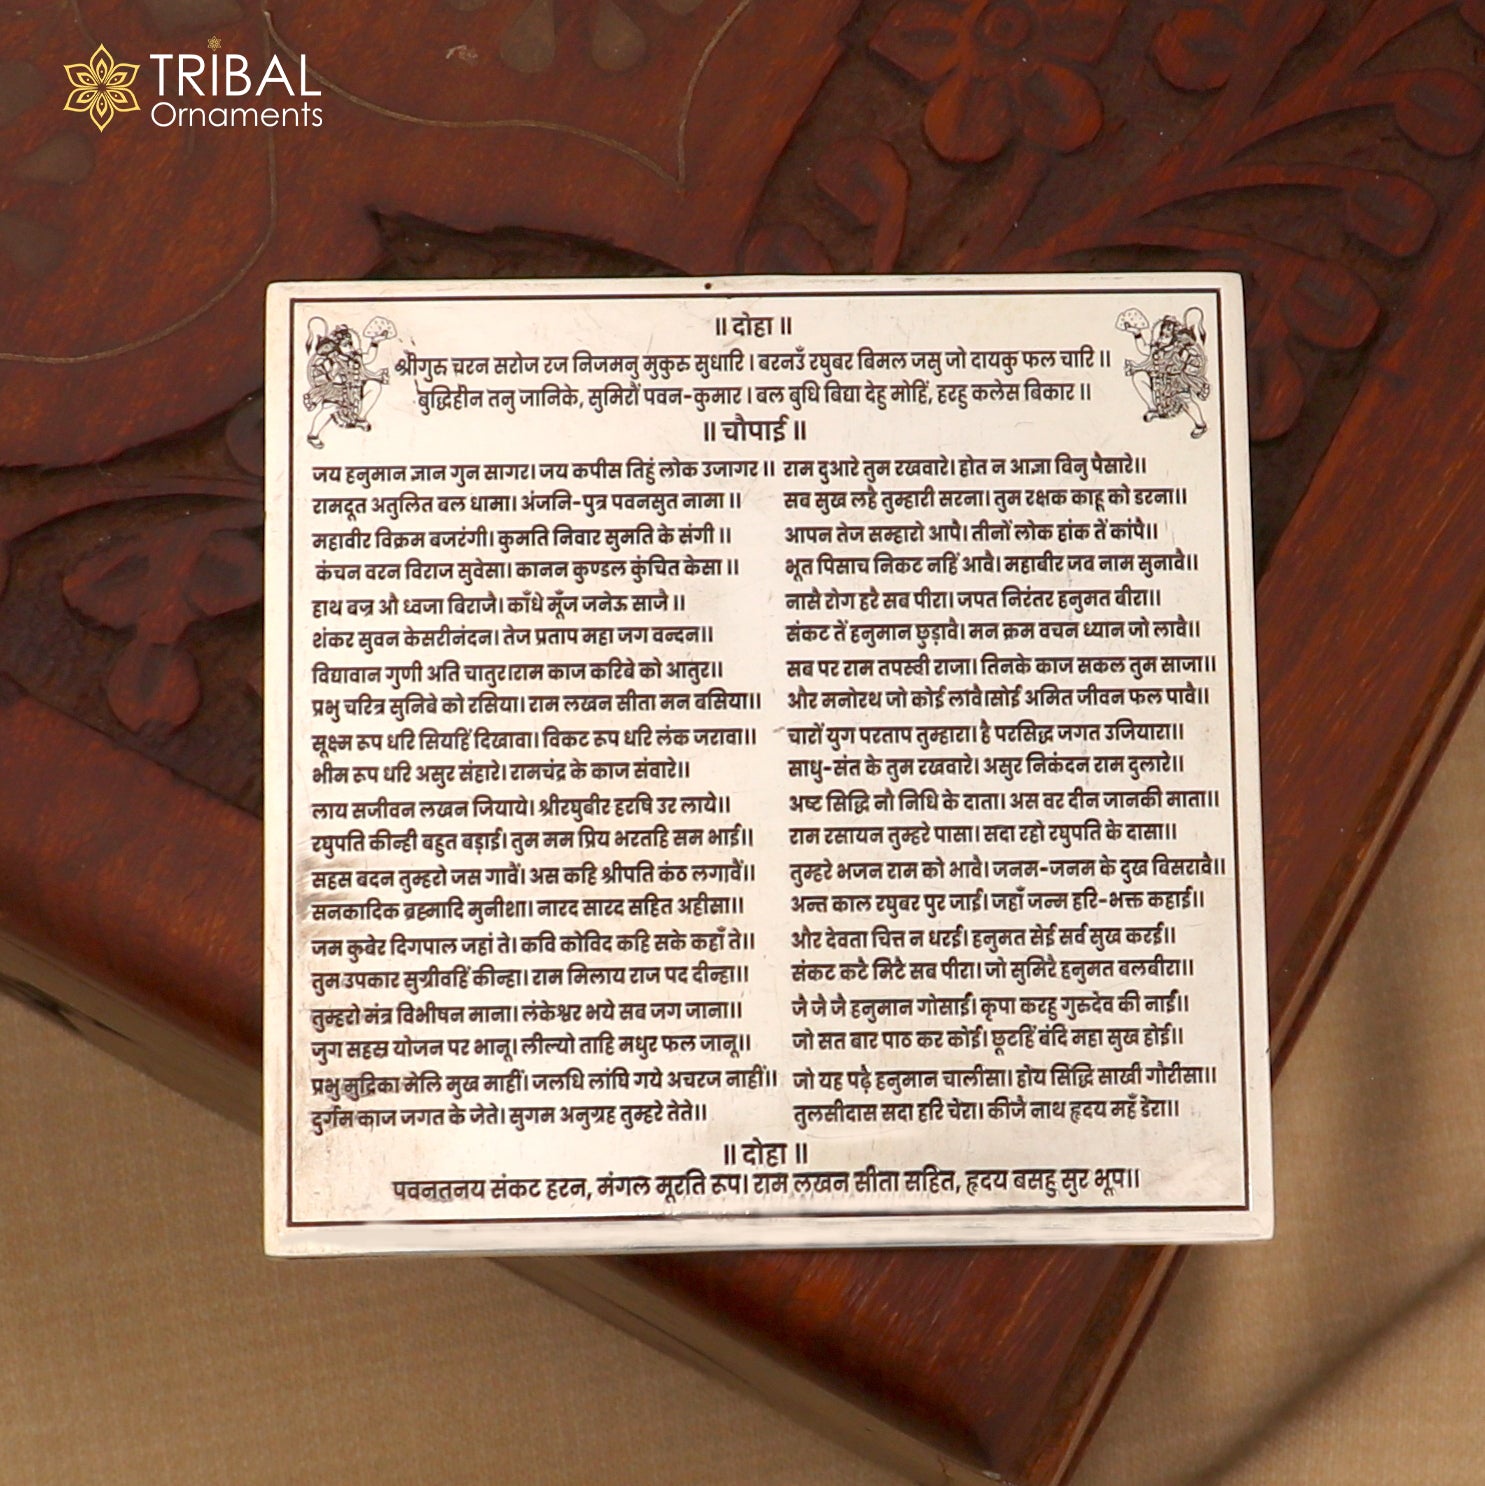 TRIBAL
Ornaments
॥ दोहा ॥
श्रीगुरु चरन सरोज रज निजमनु मुकुरु सुधारि । बरनउँ रघुबर बिमल जसु जो दायकु फल चारि ॥
बुद्धिहीन तनु जानिके, सुमिरौं पवन-कुमार । बल बुधि बिद्या देहु मोहिं, हरहु कलेस बिकार ॥
॥ चौपाई ॥
जय हनुमान ज्ञान गुन सागर। जय कपीस तिहुं लोक उजागर ॥
रामदूत अतुलित बल धामा। अंजनि-पुत्र पवनसुत नामा ॥
महावीर विक्रम बजरंगी। कुमति निवार सुमति के संगी ॥
कंचन वरन विराज सुवेसा। कानन कुण्डल कुंचित केसा ॥
हाथ बज्र औ ध्वजा बिराजै। काँधे मूँज जनेऊ साजै ॥
शंकर सुवन केसरीनंदन। तेज प्रताप महा जग वन्दन॥
विद्यावान गुणी अति चातुर।राम काज करिबे को आतुर॥
प्रभु चरित्र सुनिबे को रसिया। राम लखन सीता मन बसिया॥
सूक्ष्म रूप धरि सियहिं दिखावा। विकट रूप धरि लंक जरावा॥
भीम रूप धरि असुर संहारे। रामचंद्र के काज संवारे॥
लाय सजीवन लखन जियाये। श्रीरघुबीर हरषि उर लाये॥
रघुपति कीन्ही बहुत बड़ाई। तुम मम प्रिय भरतहि सम भाई॥
सहस बदन तुम्हरो जस गावैं। अस कहि श्रीपति कंठ लगावैं॥
सनकादिक ब्रह्मादि मुनीशा। नारद सारद सहित अहीसा॥
जम कुबेर दिगपाल जहां ते। कवि कोविद कहि सके कहाँ ते॥
तुम उपकार सुग्रीवहिं कीन्हा। राम मिलाय राज पद दीन्हा॥
तुम्हरो मंत्र विभीषन माना। लंकेश्वर भये सब जग जाना॥
जुग सहस्र योजन पर भानू। लील्यो ताहि मधुर फल जानू॥
प्रभु मुद्रिका मेलि मुख माहीं। जलधि लांघि गये अचरज नाहीं॥
दुर्गम काज जगत के जेते। सुगम अनुग्रह तुम्हरे तेते॥
राम दुआरे तुम रखवारे। होत न आज्ञा विनु पैसारे॥
सब सुख लहै तुम्हारी सरना। तुम रक्षक काहू को डरना॥
आपन तेज सम्हारो आपै। तीनों लोक हांक तें कांपै॥
भूत पिसाच निकट नहिं आवै। महाबीर जव नाम सुनावै॥
नासै रोग हरै सब पीरा। जपत निरंतर हनुमत बीरा॥
संकट तें हनुमान छुड़ावै। मन क्रम वचन ध्यान जो लावै॥
सब पर राम तपस्वी राजा। तिनके काज सकल तुम साजा॥
और मनोरथ जो कोई लावै।सोई अमित जीवन फल पावै॥
चारों युग परताप तुम्हारा। है परसिद्ध जगत उजियारा॥
साधु-संत के तुम रखवारे। असुर निकंदन राम दुलारे॥
अष्ट सिद्धि नौ निधि के दाता। अस वर दीन जानकी माता॥
राम रसायन तुम्हरे पासा। सदा रहो रघुपति के दासा॥
तुम्हरे भजन राम को भावै। जनम-जनम के दुख बिसरावै॥
अन्त काल रघुबर पुर जाई। जहाँ जन्म हरि-भक्त कहाई॥
और देवता चित्त न धरई। हनुमत सेई सर्व सुख करई॥
संकट कटै मिटै सब पीरा। जो सुमिरै हनुमत बलबीरा॥
जै जै जै हनुमान गोसाईं। कृपा करहु गुरुदेव की नाईं॥
जो सत बार पाठ कर कोई। छूटहिं बंदि महा सुख होई॥
जो यह पढ़ै हनुमान चालीसा। होय सिद्धि साखी गौरीसा॥
तुलसीदास सदा हरि चेरा। कीजै नाथ हृदय महँ डेरा॥
॥ दोहा ॥
पवनतनय संकट हरन, मंगल मूरति रूप। राम लखन सीता सहित, हृदय बसहु सुर भूप॥